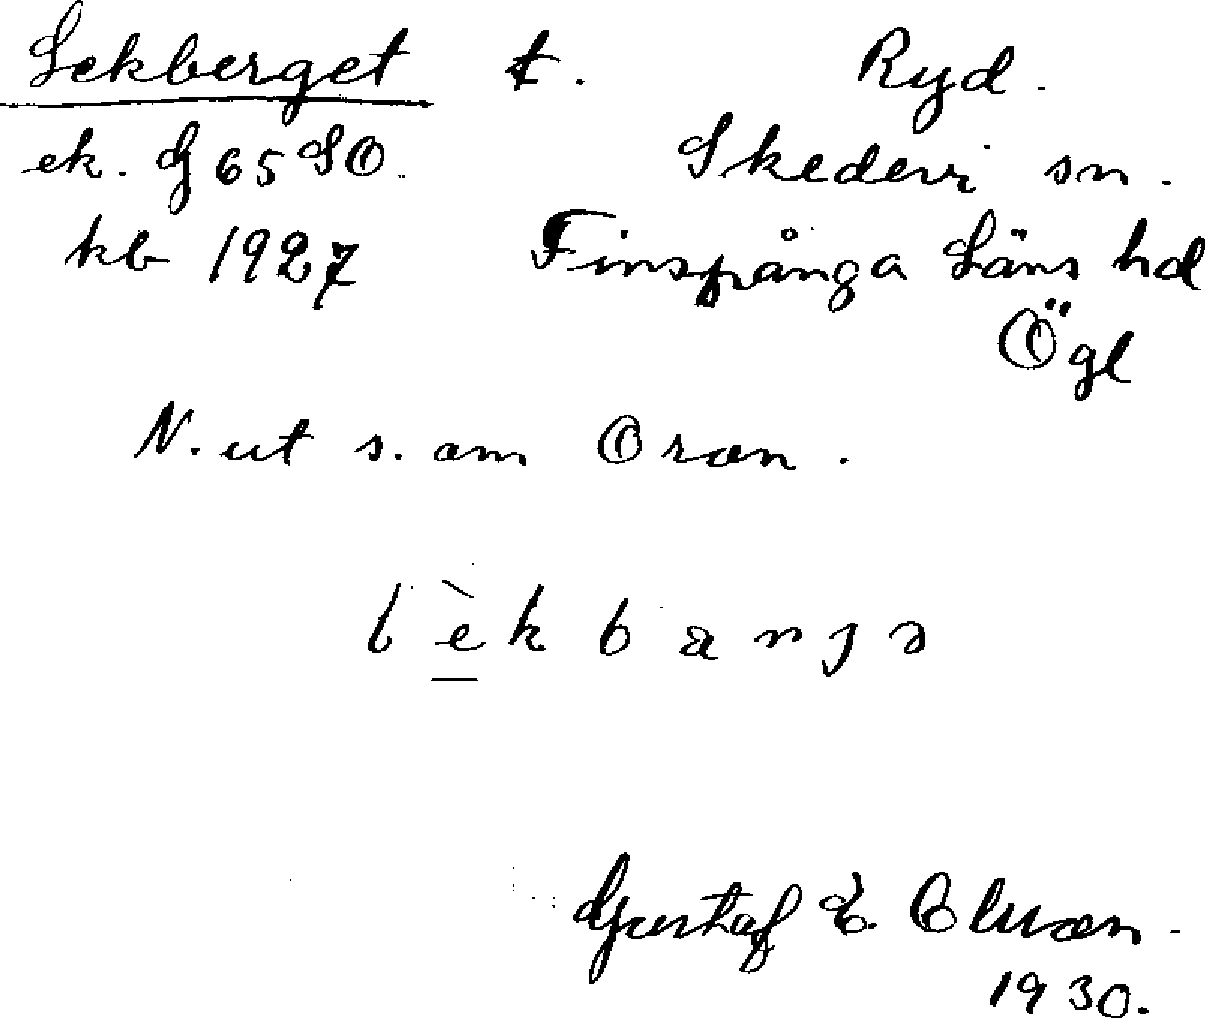 Lekberget t. Ryd.
ek. G 65 SO. Skedevi sn.
kb 1927 Finspånga Läns hd
Ögl
N. ut s. om Oran.
lèkbarjə
Gustaf E.
1930.